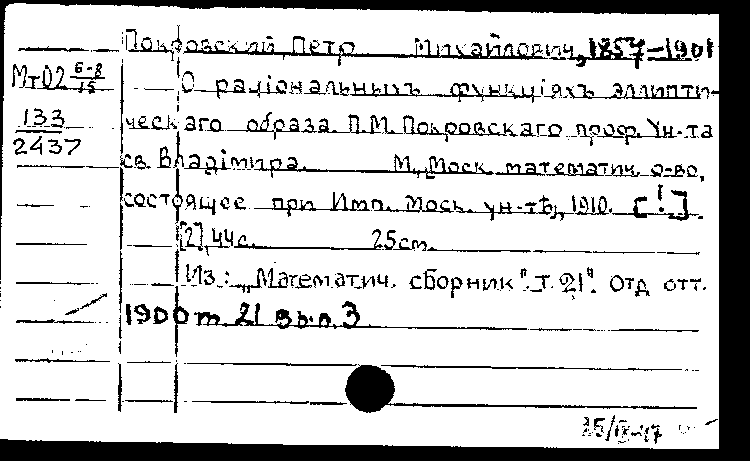 Покровский, Петр Михайлович, 1857-1901
МтО2 6-8/15
О раціональныхъ функціяхъ эллипти-
133/2437
ческаго образа. П.М. Покровскаго проф. Ун-та
св. Владіміра. М., Моск. математич. о-во,
состоящее при Имп. Моск. ун-тѣ, 1910. [!].
[2], 44 с. 25 см.
Из: „Математич. сборник". т. 21". Отд. отт.
1900 т. 21 вып. 3
25/IX-47